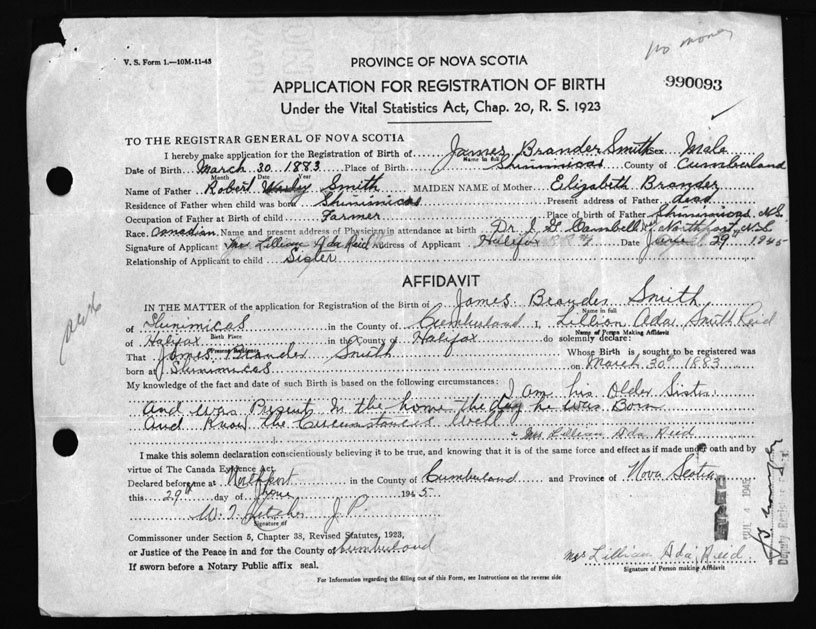 no money
V. S. Form 1.—10M-11-43
PROVINCE OF NOVA SCOTIA
990093
APPLICATION FOR REGISTRATION OF BIRTH
Under the Vital Statistics Act, Chap. 20, R. S. 1923
TO THE REGISTRAR GENERAL OF NOVA SCOTIA
I hereby make application for the Registration of Birth of James Brander Smith Sex Male
Name in full
Date of Birth March 30 1883 Place of Birth Shinimicas County of Cumberland
Month Date Year
Name of Father Robert Smith MAIDEN NAME of Mother Elizabeth Brander
Residence of Father when child was born Shinimicas Present address of Father dead
Occupation of Father at Birth of child Farmer Place of birth of Father Shinimicas N.S.
Race Canadian Name and present address of Physician in attendance at birth Dr. Cambell Northport N.S.
Signature of Applicant Mrs Lillian Ada Reid Address of Applicant Halifax Date June 29 1945
Relationship of Applicant to child Sister
AFFIDAVIT
IN THE MATTER of the application for Registration of the Birth of James Brander Smith
Name in full
of Shinimicas in the County of Cumberland I, Lillian Ada Smith Reid
Birth Place Name of Person Making Affidavit
of Halifax in the County of Halifax do solemnly declare:
That James Brander Smith Whose Birth is sought to be registered was
born at Shinimicas on March 30th 1883
My knowledge of the fact and date of such Birth is based on the following circumstances: I am his Older Sister
And was Present In the home the day he was Born
And Know the Circumstances Well
Mrs Lillian Ada Reid
I make this solemn declaration conscientiously believing it to be true, and knowing that it is of the same force and effect as if made under oath and by
virtue of The Canada Evidence Act.
Declared before me at Northport in the County of Cumberland and Province of Nova Scotia
this 29th day of June 1945
J. P.
Signature of
Commissioner under Section 5, Chapter 38, Revised Statutes, 1923,
or Justice of the Peace in and for the County of Cumberland
If sworn before a Notary Public affix seal.
Mrs Lillian Ada Reid
Signature of Person making Affidavit
For Information regarding the filling out of this Form, see Instructions on the reverse side
JUL 4 1945
Deputy Registrar